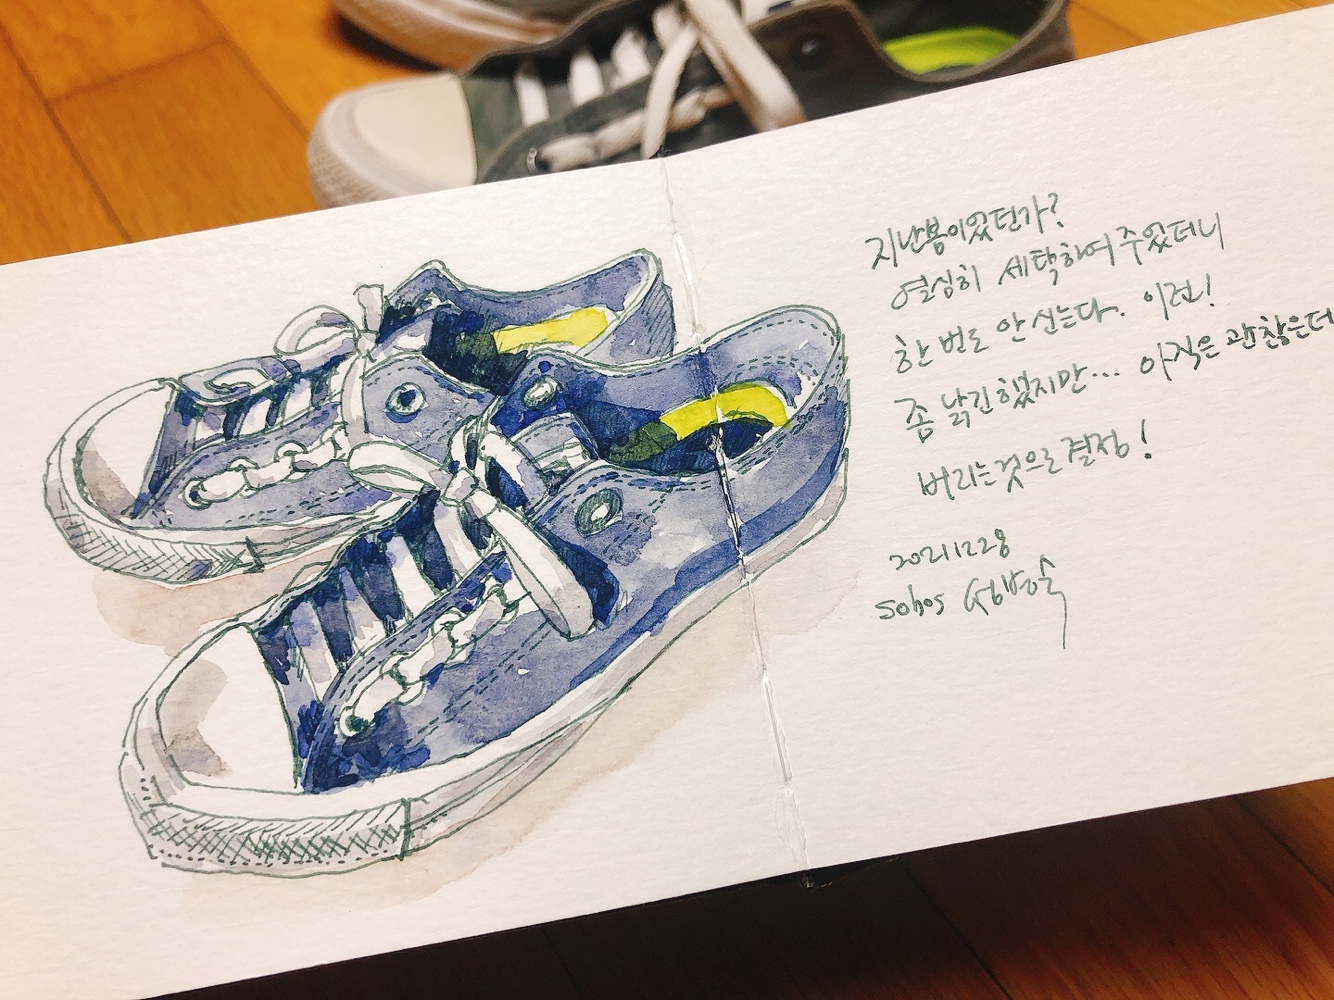 지난봄이었던가?
열심히 세탁하여 주었더니
한 번도 안 신는다. 이런!
좀 낡긴했지만... 아직은 괜찮은데
버리는것으로 결정!
20211228
sobos